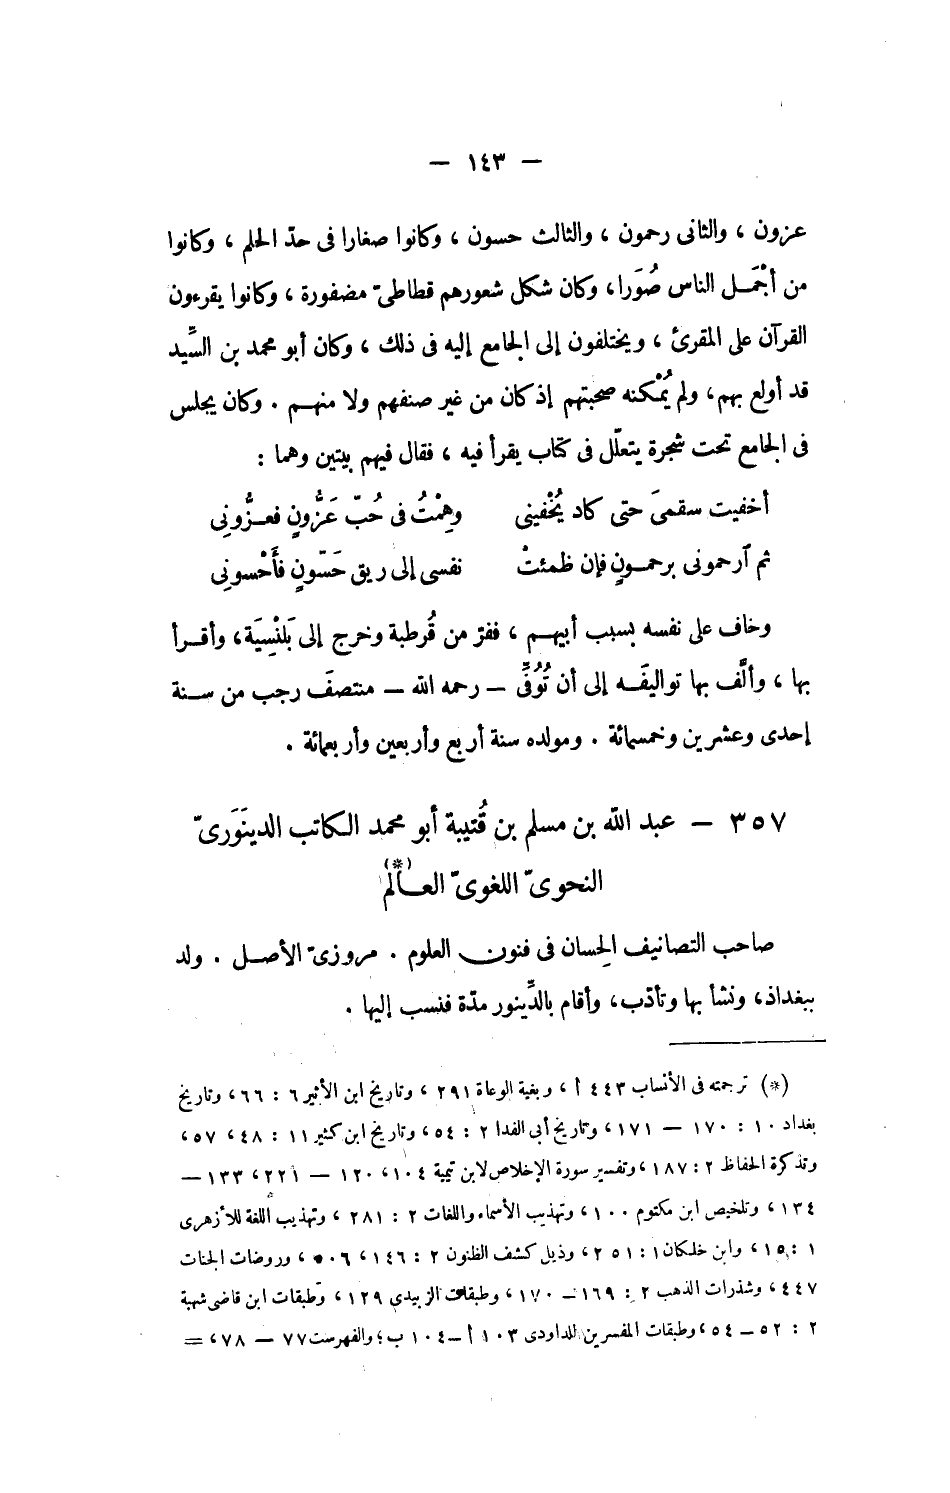 — ١٤٣ —
عزون ، والثانى رحمون ، والثالث حسون ، وكانوا صغارا فى حدّ الحلم ، وكانوا
من أجْمَل الناس صُوَرا، وكان شكل شعورهم قطاطىّ مضفورة ، وكانوا يقرءون
القرآن على المقرئ ، ويختلفون إلى الجامع إليه فى ذلك ، وكان أبو محمد بن السِّيد
قد أولع بهم، ولم يُمْكنه صحبتهم إذ كان من غير صنفهم ولا منهم . وكان يجلس
فى الجامع تحت شجرة يتعلّل فى كتاب يقرأ فيه ، فقال فيهم بيتين وهما :
أخفيت سقمىَ حتى كاد يُخْفينى وهِمْتُ فى حُبّ عَزُّونٍ فعزُّونِى
ثم ٱرحمونى برحمونٍ فإن ظمئتْ نفسى إلى ريق حَسّونٍ فأَحْسونِى
وخاف على نفسه بسبب أبيهم ، ففرّ من قُرطبة وخرج إلى بَلَنْسِيَة، وأقرأ
بها ، وألَّف بها تواليفَه إلى أن تُوُفِّى – رحمه الله – منتصفَ رجب من سنة
إحدى وعشرين وخمسمائة . ومولده سنة أربع وأربعين وأربعمائة .
٣٥٧ – عبد الله بن مسلم بن قُتيبة أبو محمد الكاتب الدينَوَرىّ
النحوىّ اللغوىّ العالم(*)
صاحب التصانيف الحِسان فى فنون العلوم . مروزىّ الأصل . ولد
ببغداذ، ونشأ بها وتأدّب، وأقام بالدِّينور مدّة فنسب إليها .
(*) ترجمته فى الأنساب ٤٤٣ أ ، وبغية الوعاة ٢٩١ ، وتاريخ ابن الأثير ٦ : ٦٦، وتاريخ
بغداد ١٠ : ١٧٠ – ١٧١ ، وتاريخ أبى الفدا ٢ : ٥٤، وتاريخ ابن كثير ١١ : ٤٨، ٥٧ ،
وتذكرة الحفاظ ٢ : ١٨٧ ، وتفسير سورة الإخلاص لابن تيمية ١٠٤، ١٢٠ – ٢٢١، ١٣٣ –
١٣٤ ، وتلخيص ابن مكتوم ١٠٠ ، وتهذيب الأسماء واللغات ٢ : ٢٨١ ، وتهذيب اللغة للأزهرى
١ : ١٥، وابن خلكان ١ : ٢٥١ ، وذيل كشف الظنون ٢ : ١٤٦، ٥٠٦ ، وروضات الجنات
٤٤٧ ، وشذرات الذهب ٢ : ١٦٩ – ١٧٠ ، وطبقات الزبيدى ١٢٩ ، وطبقات ابن قاضى شهبة
٢ : ٥٢ – ٥٤ ، وطبقات المفسرين للداودى ١٠٣ أ – ١٠٤ ب ؛ والفهرست ٧٧ – ٧٨، =